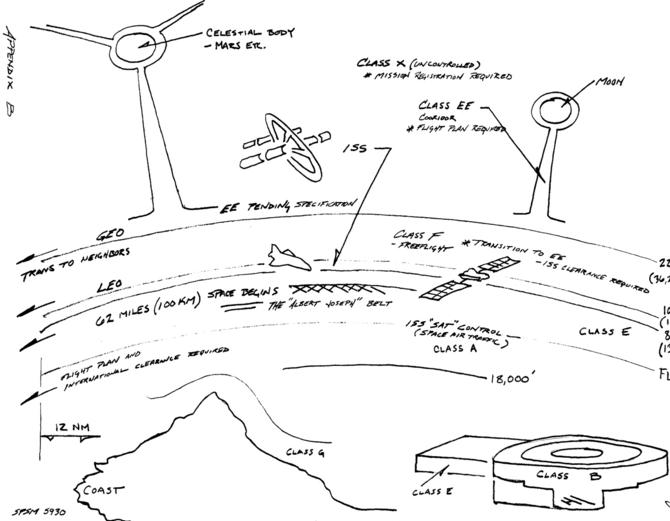 APPENDIX B
CELESTIAL BODY
- MARS ETC.
CLASS X (UNCONTROLLED)
* MISSION REGISTRATION REQUIRED
MOON
CLASS EE
COORIDOR
* FLIGHT PLAN REQUIRED
ISS
EE PENDING SPECIFICATION
GEO
TRANS TO NEIGHBORS
CLASS F
- FREEFLIGHT
* TRANSITION TO EE
- ISS CLEARANCE REQUIRED
22
(36,
LEO
62 MILES (100 KM) SPACE BEGINS
THE "ALBERT JOSEPH" BELT
10
(1
8
(1
ISS "SAT" CONTROL
(SPACE AIR TRAFFIC)
CLASS E
CLASS A
FL
FLIGHT PLAN AND
INTERNATIONAL CLEARANCE REQUIRED
18,000'
12 NM
CLASS G
COAST
CLASS E
CLASS B
SPSM 5930